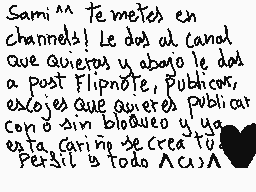 Sami^^ Te metes en
channels! Le das al canal
que quieras y abajo le das
a post Flipnote, publicar,
escojes que quieres publicar
con o sin bloqueo y ya
esta cariño se crea tú
Perfil y todo ^(ω)^